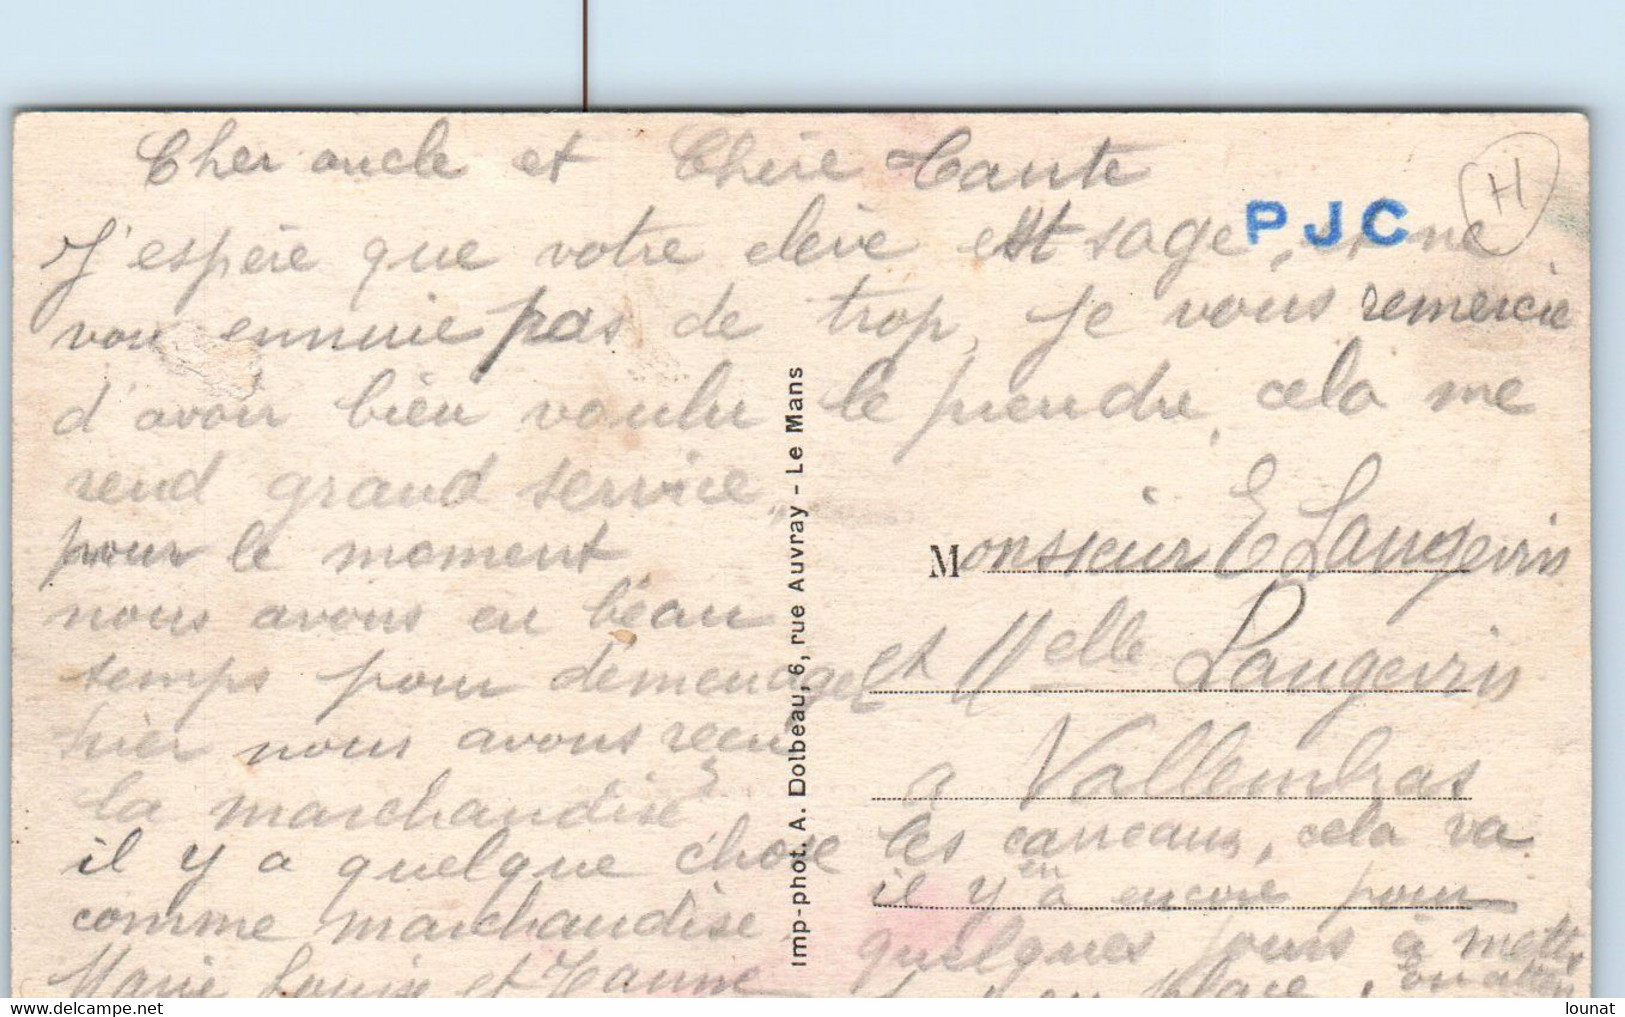 Cher oncle et Chère Tante
J'espère que votre elève est sage, ne
vous ennuie pas de trop, je vous remercie
d'avoir bien voulu le prendre, cela me
rend grand service,
pour le moment
nous avons eu beau
temps pour demenager
hier nous avons reçu
la marchandise
il y a quelque chose
comme marchandise
Marie Louise et Jeanne
PJC
H
Imp-phot. A. Dolbeau, 6, rue Auvray - Le Mans
Monsieur E Langevin
et Melle Langevin
a Vallembras
les carreaux, cela va
il y en a encore pour
quelques jours à mettre
place,
lounat